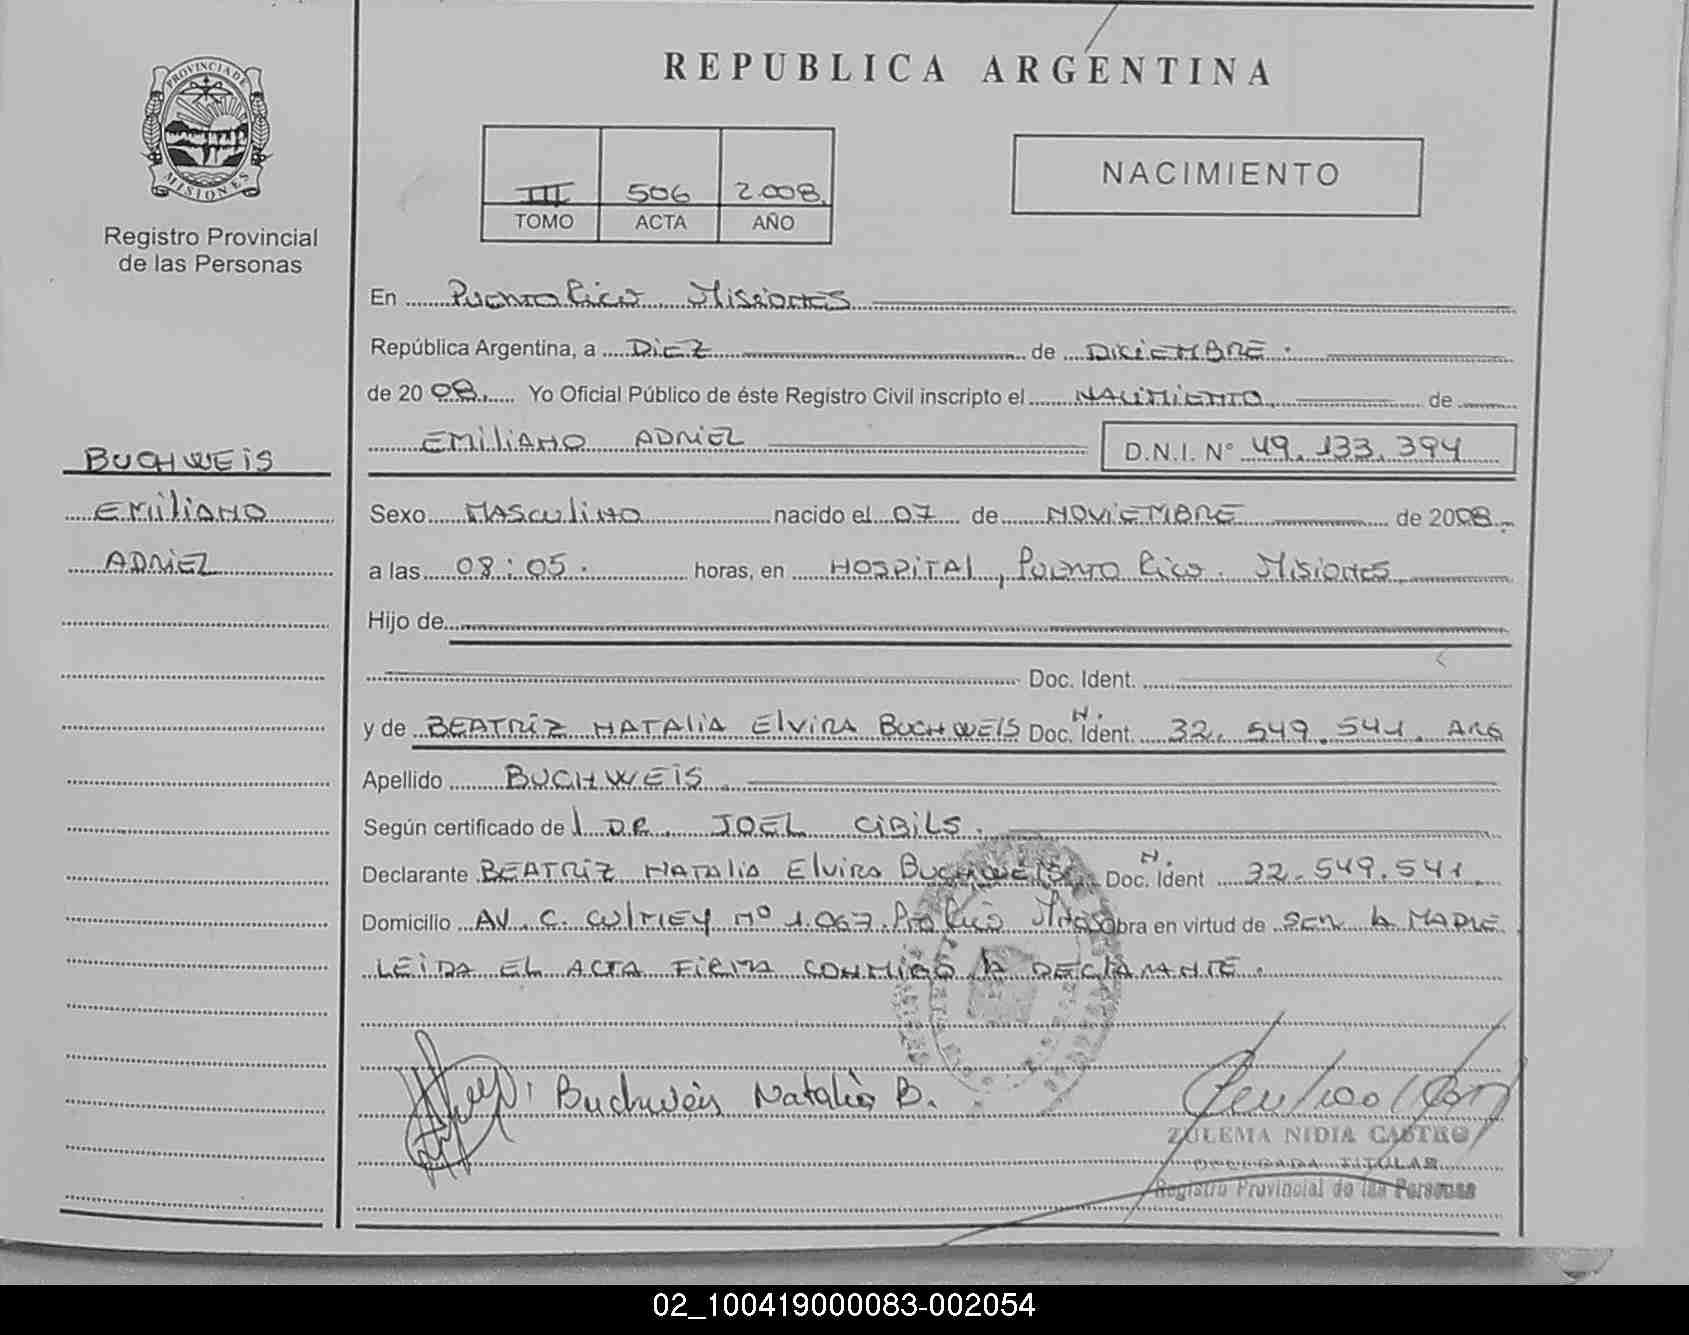 PROVINCIA DE
MISIONES
Registro Provincial
de las Personas
BUCHWEIS
EMILIANO
ADRIEL
REPUBLICA ARGENTINA
III 506 2.008
TOMO ACTA AÑO
NACIMIENTO
En Puerto Rico Misiones
República Argentina, a DiEZ de DICIEMBRE.
de 20 08. Yo Oficial Público de éste Registro Civil inscripto el NACIMIENTO de
EMILIANO ADRIEL D.N.I. N° 49.133.394
Sexo MASCULINO nacido el 07 de NOVIEMBRE de 2008.
a las 08:05. horas, en HOSPITAL, Puerto Rico. Misiones
Hijo de
Doc. Ident.
y de BEATRIZ NATALIA ELVIRA BUCHWEIS Doc. N. Ident. 32.549.541. ARG
Apellido BUCHWEIS
Según certificado del DR. JOEL CIBILS.
Declarante BEATRIZ NATALIA ELVIRA BUCHWEIS Doc. N. Ident 32.549.541.
Domicilio AV. C. CULMEY Nº 1.067. Pto Rico Mnes Obra en virtud de SER LA MADRE
LEIDA EL ACTA FIRMA CONMIGO LA DECLARANTE.
Buchweis Natalia B.
ZULEMA NIDIA CASTRO
DELEGADA TITULAR
Registro Provincial de las Personas
02_100419000083-002054